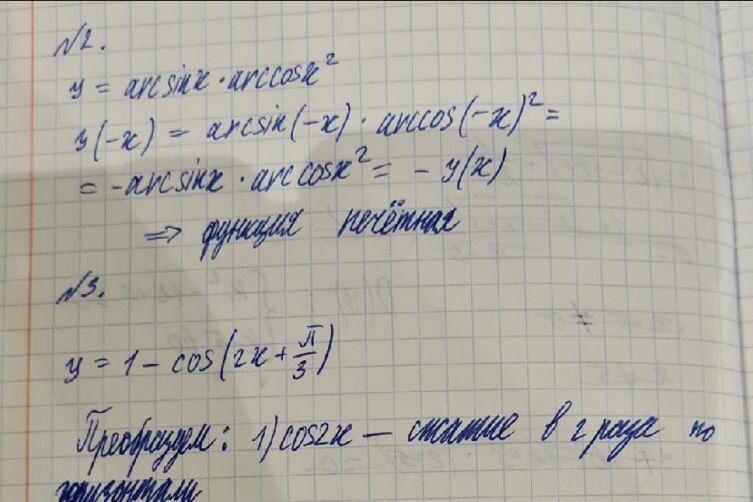 №2.
y = arcsinx · arccosx²
y(-x) = arcsin(-x) · arccos(-x)² =
= -arcsinx · arccosx² = - y(x)
⇒ функция нечётная
№3.
y = 1 - cos(2x + π/3)
Преобразуем: 1) cos2x — сжатие в 2 раза по
горизонтали